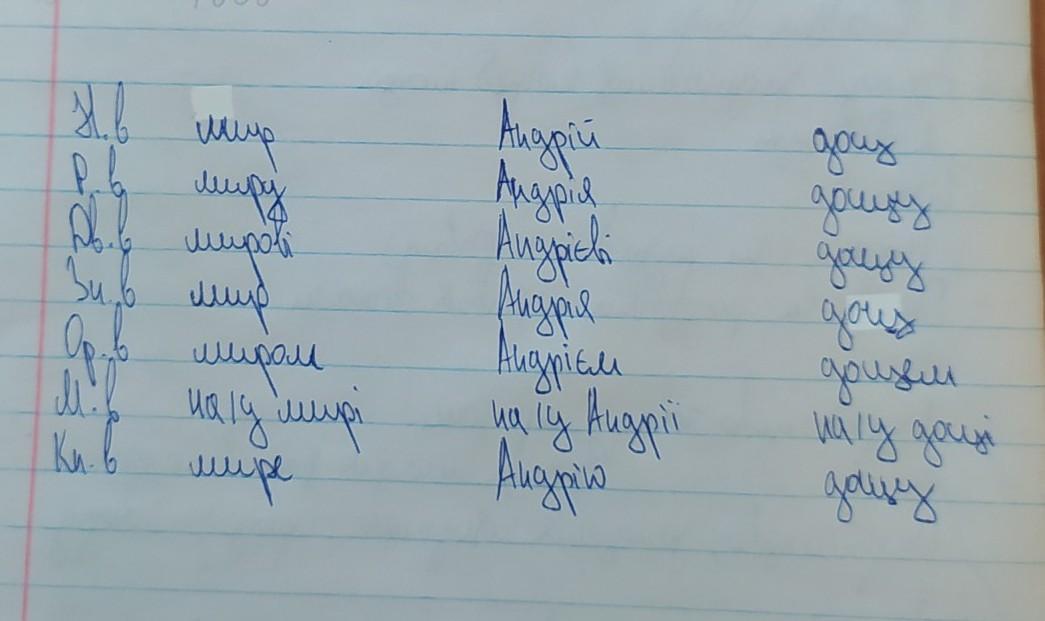 Н.в мир Андрій дощ
Р.в миру Андрія дощу
Дв.в мирові Андрієві дощу
Зн.в мир Андрія дощ
Ор.в миром Андрієм дощем
М.в на/у мирі на/у Андрії на/у дощі
Кл.в мире Андрію дощу